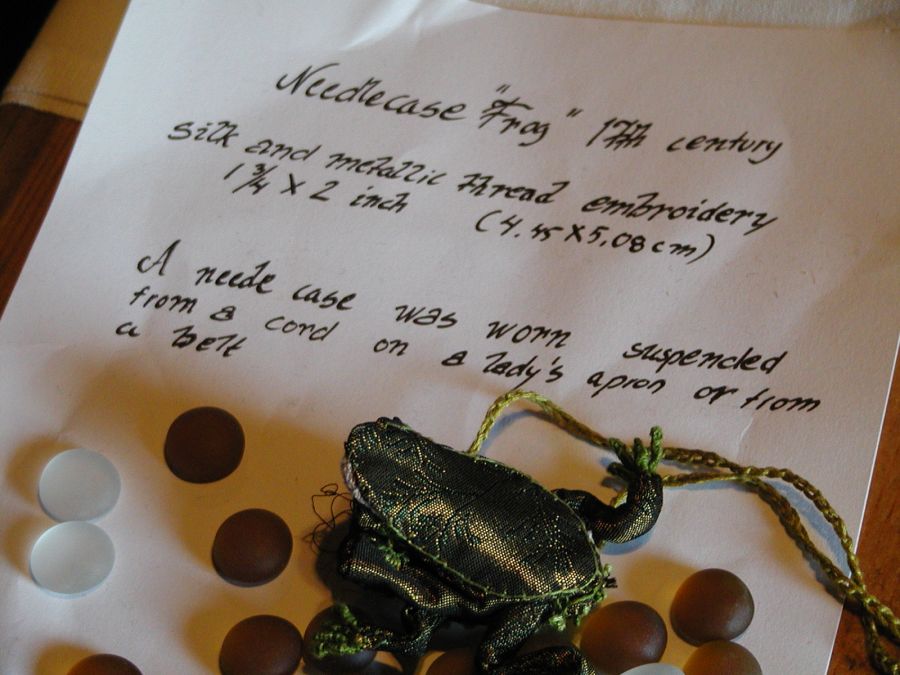 Needlecase "Frog" 17th century
Silk and metallic thread embroidery
1 3/4 X 2 inch (4.45X5,08cm)
A neede case was worn suspended
from a cord on a lady's apron or from
a belt